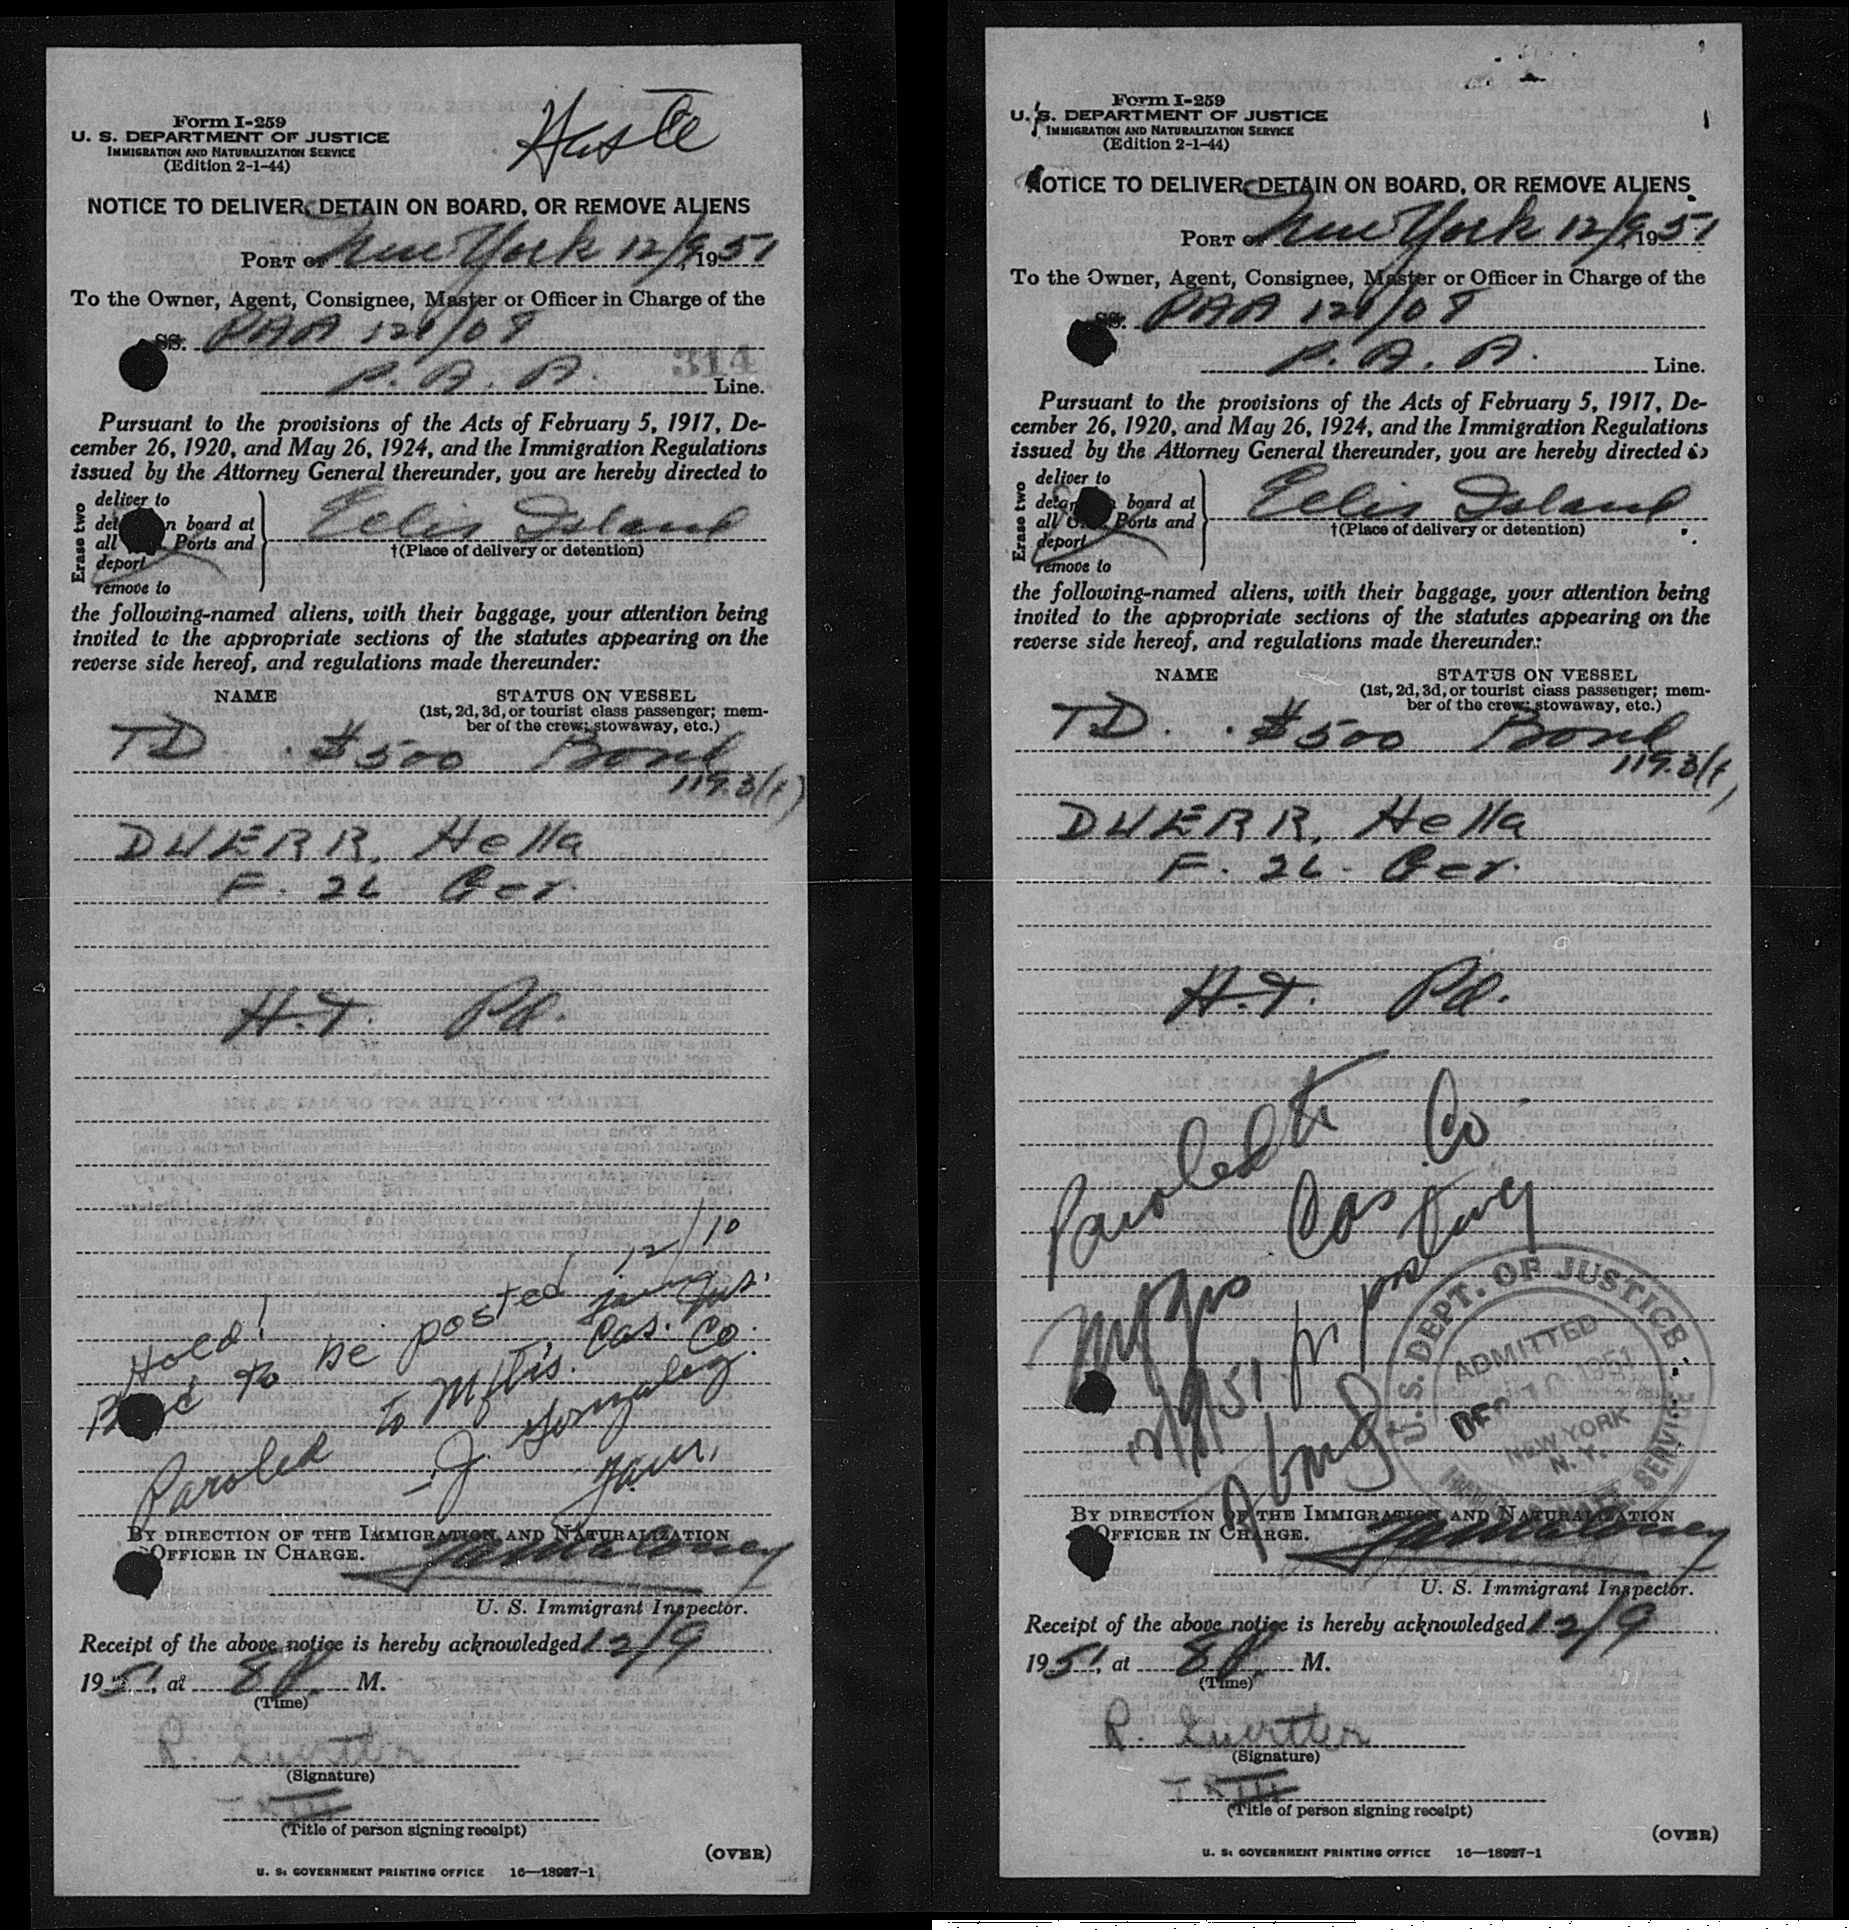 Form I-259
U. S. DEPARTMENT OF JUSTICE
IMMIGRATION AND NATURALIZATION SERVICE
(Edition 2-1-44)
NOTICE TO DELIVER, DETAIN ON BOARD, OR REMOVE ALIENS
PORT OF New York 12/9, 1951
To the Owner, Agent, Consignee, Master or Officer in Charge of the
SS. PAA 121/08
314
P. A. A. Line.
Pursuant to the provisions of the Acts of February 5, 1917, De-
cember 26, 1920, and May 26, 1924, and the Immigration Regulations
issued by the Attorney General thereunder, you are hereby directed to
Erase two
deliver to
board at
all Ports and
deport
remove to
Ellis Island
†(Place of delivery or detention)
the following-named aliens, with their baggage, your attention being
invited to the appropriate sections of the statutes appearing on the
reverse side hereof, and regulations made thereunder:
NAME STATUS ON VESSEL
(1st, 2d, 3d, or tourist class passenger; mem-
ber of the crew; stowaway, etc.)
TD . $500 Bond
119.3(f)
DUERR, Hella
F. 26 Ger.
H.T. Pd.
Hold!
to be posted 12/10
Paroled to Cas. Co.
J.
BY DIRECTION OF THE IMMIGRATION AND NATURALIZATION
OFFICER IN CHARGE.
U. S. Immigrant Inspector.
Receipt of the above notice is hereby acknowledged 12/9
1951, at 8 P. M.
(Time)
R.
(Signature)
(Title of person signing receipt)
(OVER)
U. S. GOVERNMENT PRINTING OFFICE 16—18927-1
Form I-259
U. S. DEPARTMENT OF JUSTICE
IMMIGRATION AND NATURALIZATION SERVICE
(Edition 2-1-44)
NOTICE TO DELIVER, DETAIN ON BOARD, OR REMOVE ALIENS
PORT OF New York 12/9 1951
To the Owner, Agent, Consignee, Master or Officer in Charge of the
SS. PAA 121/08
P. A. A. Line.
Pursuant to the provisions of the Acts of February 5, 1917, De-
cember 26, 1920, and May 26, 1924, and the Immigration Regulations
issued by the Attorney General thereunder, you are hereby directed to
Erase two
deliver to
board at
all Ports and
deport
remove to
Ellis Island
†(Place of delivery or detention)
the following-named aliens, with their baggage, your attention being
invited to the appropriate sections of the statutes appearing on the
reverse side hereof, and regulations made thereunder:
NAME STATUS ON VESSEL
(1st, 2d, 3d, or tourist class passenger; mem-
ber of the crew; stowaway, etc.)
TD . . $500 Bond
119.3(f)
DUERR, Hella
F. 26. Ger.
H.T. Pd.
Paroled to
Cas. Co
U. S. DEPT. OF JUSTICE
ADMITTED
DEC 1951
NEW YORK
N. Y.
SERVICE
BY DIRECTION OF THE IMMIGRATION AND NATURALIZATION
OFFICER IN CHARGE.
U. S. Immigrant Inspector.
Receipt of the above notice is hereby acknowledged 12/9
1951, at 8 P. M.
(Time)
R.
(Signature)
(Title of person signing receipt)
(OVER)
U. S. GOVERNMENT PRINTING OFFICE 16—18927-1